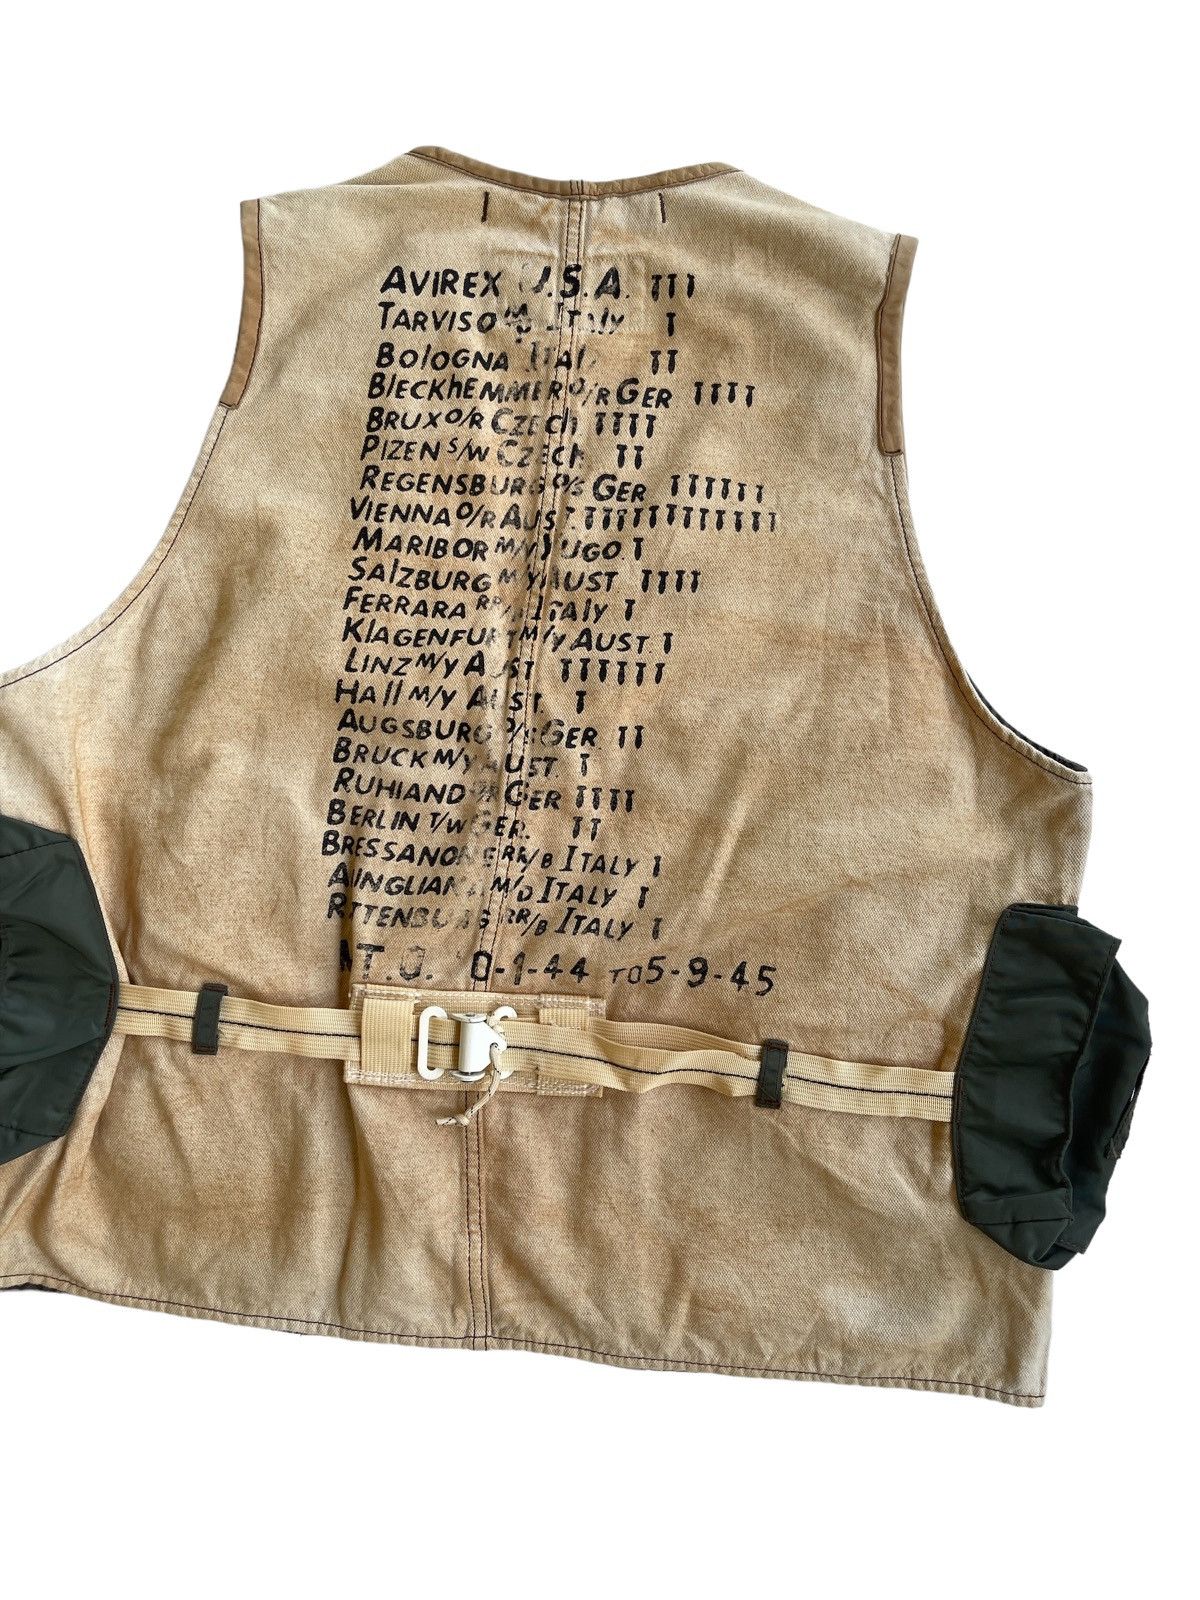 AVIREX U.S.A.
TARVISO Italy
BOLOGNA ITALY
BLECKHEMMER O/R GER
BRUX O/R CZECH
PIZEN S/W CZECH
REGENSBURG O/S GER
VIENNA O/R AUST.
MARIBOR M/Y YUGO.
SALZBURG M/Y AUST
FERRARA RR/ ITALY
KLAGENFURT M/Y AUST.
LINZ M/Y AUST
HALL M/Y AUST.
AUGSBURG GER.
BRUCK M/Y AUST.
RUHLAND O/R GER
BERLIN T/W GER.
BRESSANONE RR/B ITALY
M/D ITALY
RITTENBURG RR/B ITALY
M.T.O. 10-1-44 TO 5-9-45